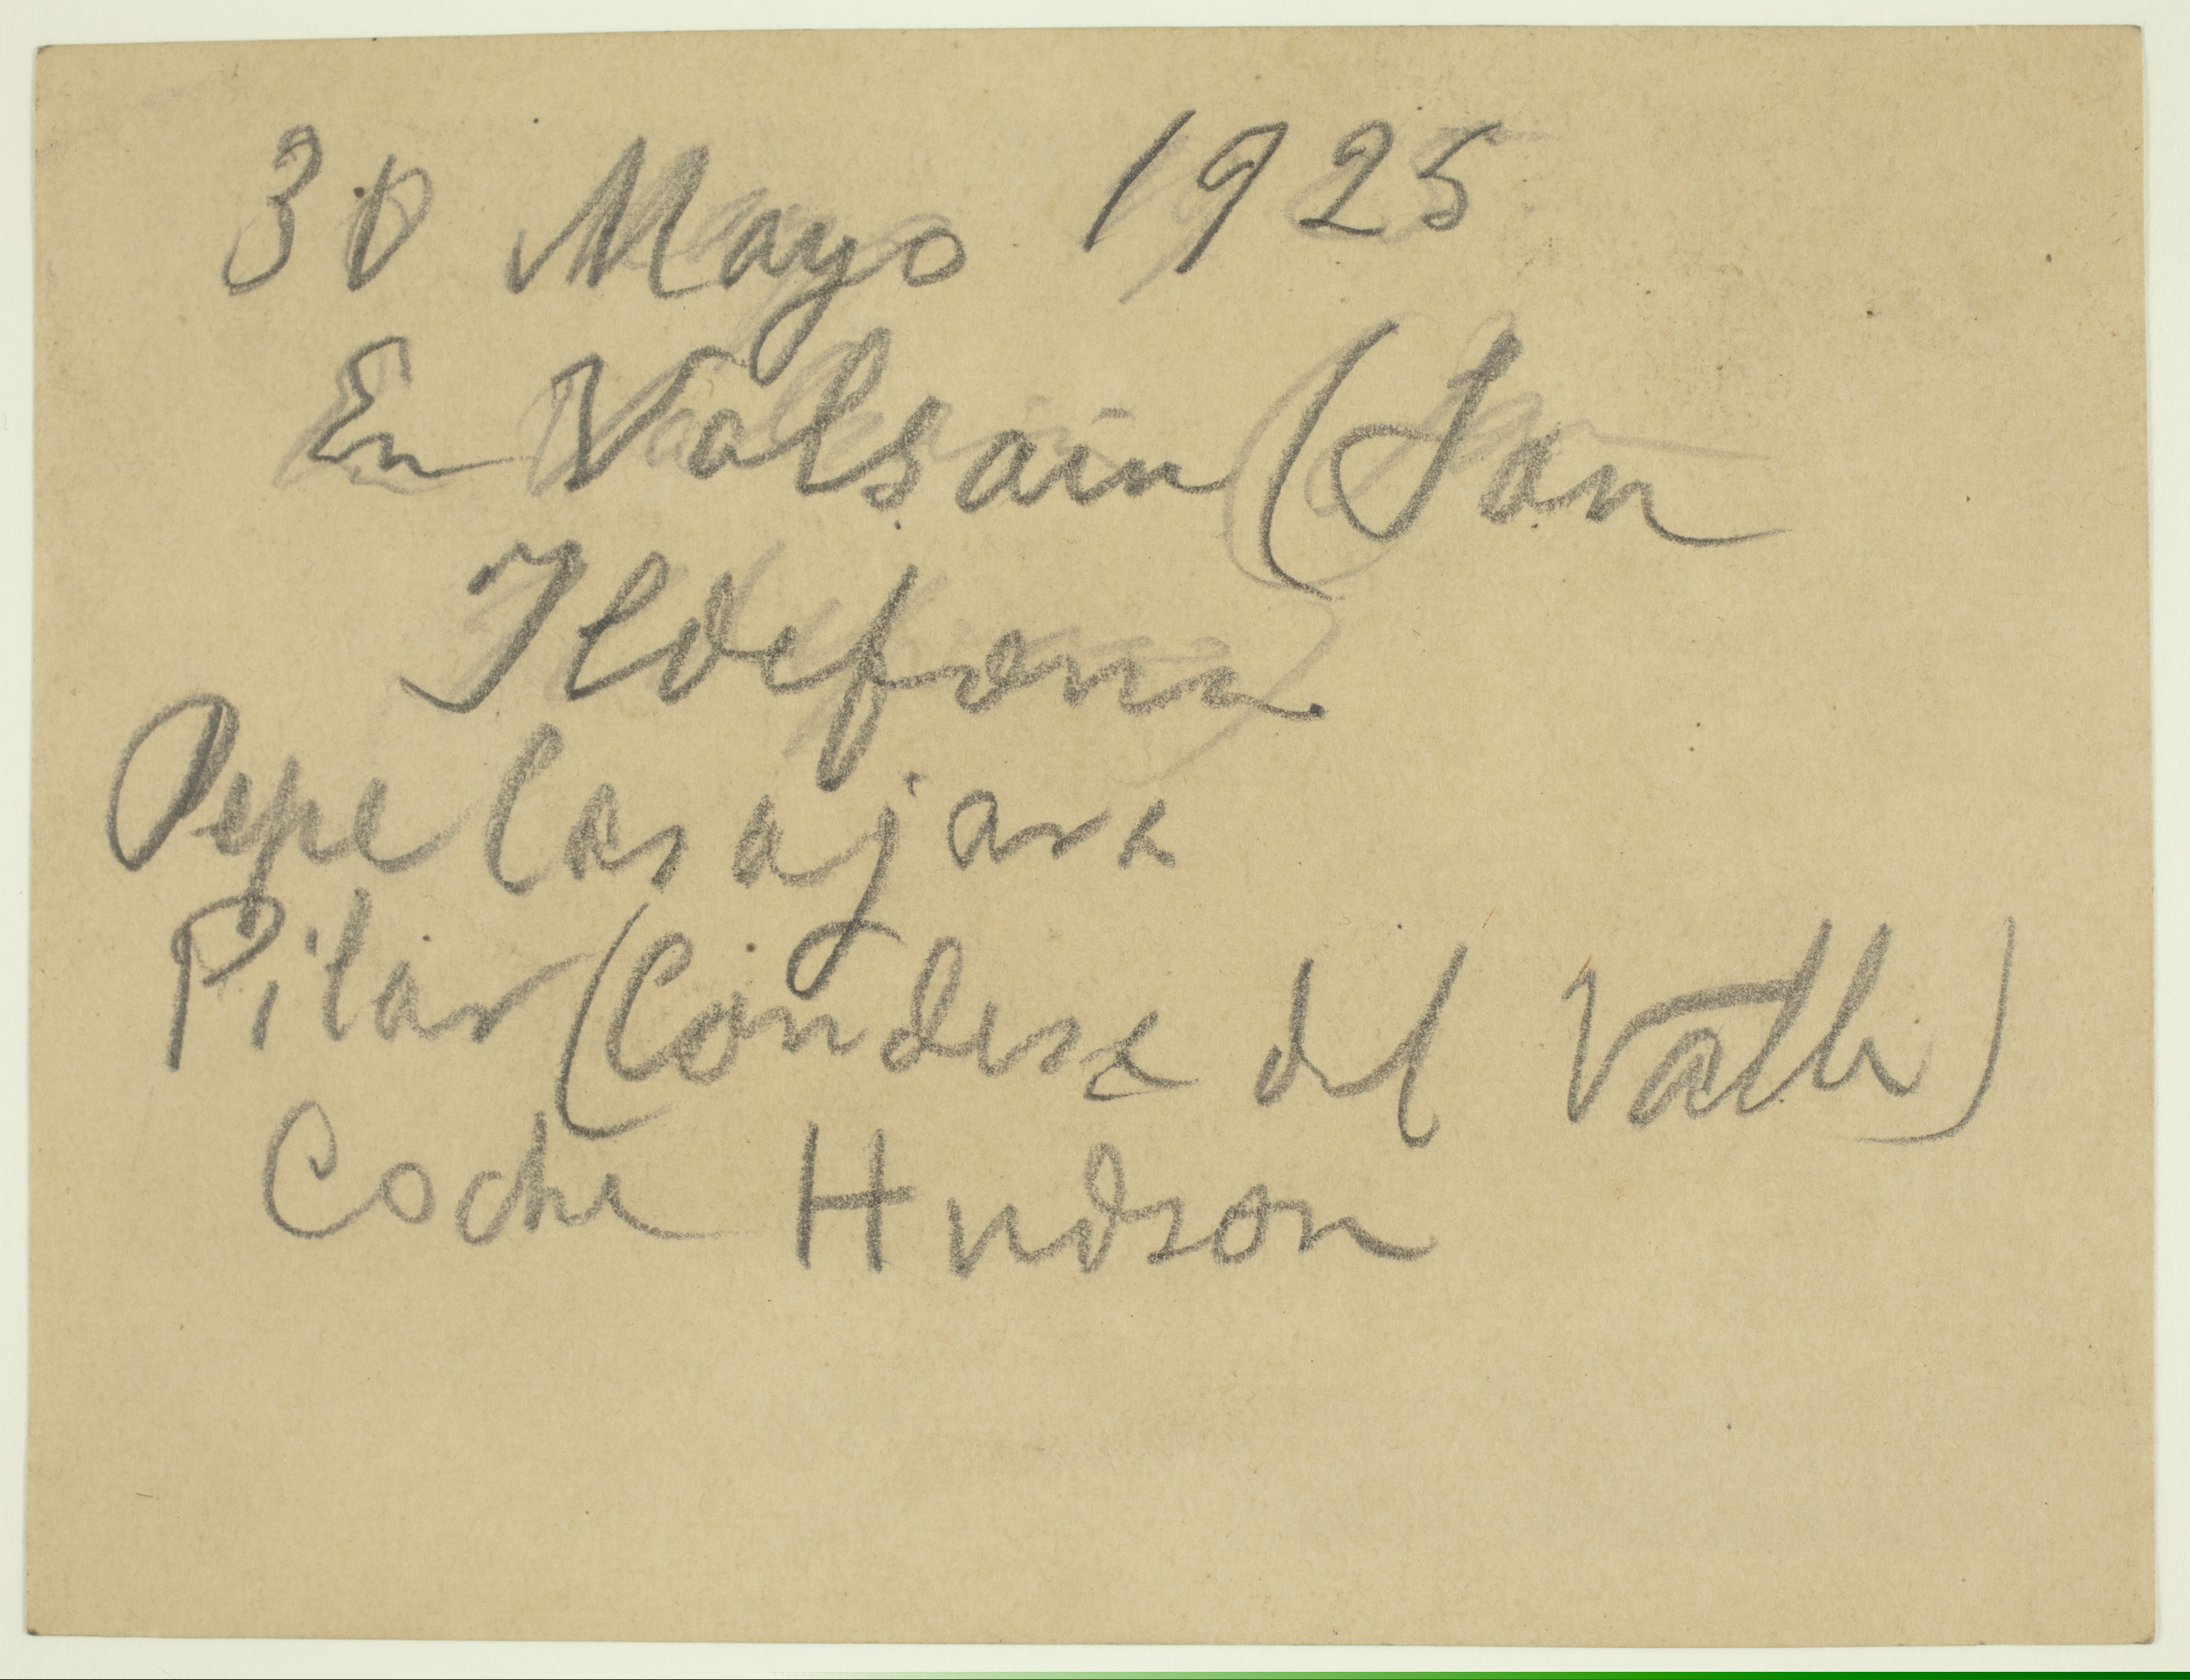 30 Mayo 1925
En Valsain (San
Ildefonso)
Pepe Casajara
Pilar (Condesa del Valle)
Coche Hudson